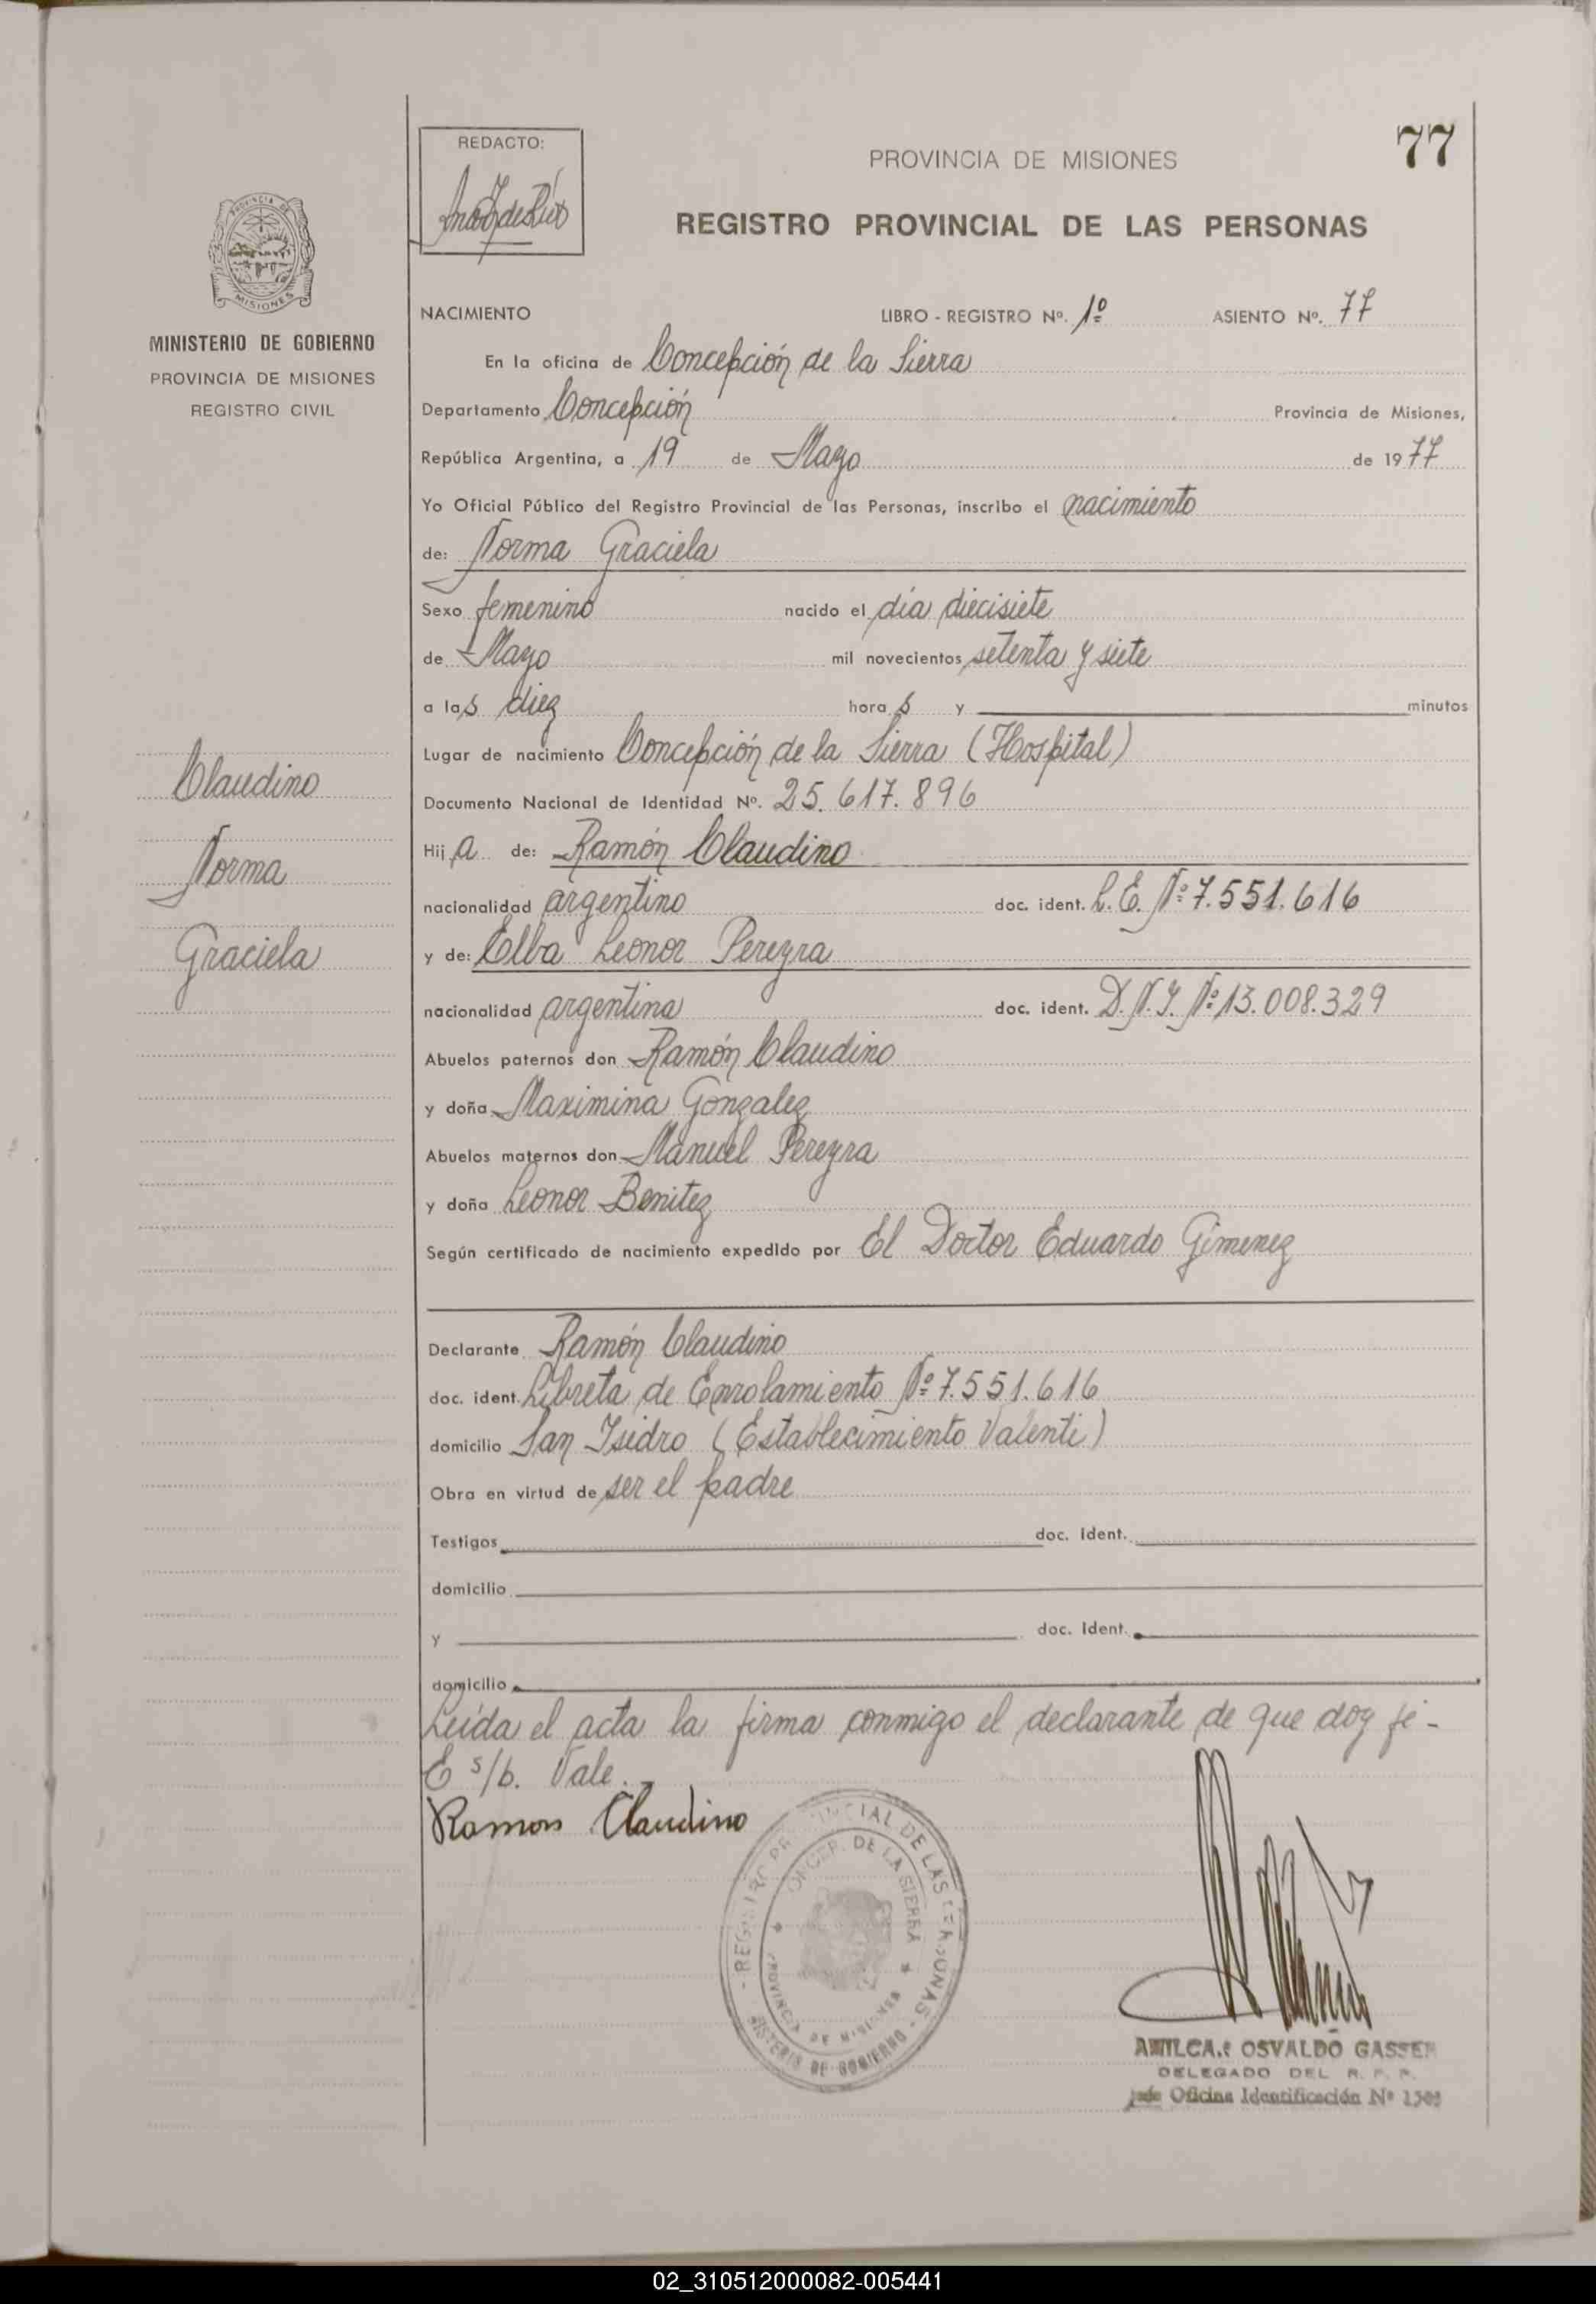 77
REDACTO:
PROVINCIA DE MISIONES
REGISTRO PROVINCIAL DE LAS PERSONAS
PROVINCIA DE
MISIONES
MINISTERIO DE GOBIERNO
PROVINCIA DE MISIONES
REGISTRO CIVIL
NACIMIENTO LIBRO - REGISTRO Nº. 1º ASIENTO Nº. 77
En la oficina de Concepción de la Sierra
Departamento Concepción Provincia de Misiones,
República Argentina, a 19 de Mayo de 1977
Yo Oficial Público del Registro Provincial de las Personas, inscribo el nacimiento
de: Norma Graciela
Sexo femenino nacido el día diecisiete
de Mayo mil novecientos setenta y siete
a las diez horas y minutos
Lugar de nacimiento Concepción de la Sierra (Hospital)
Documento Nacional de Identidad Nº. 25.617.896
Hija de: Ramón Claudino
nacionalidad argentino doc. ident. L.E. Nº 7.551.616
y de: Elba Leonor Pereyra
nacionalidad argentina doc. ident. D.N.I. Nº 13.008.329
Abuelos paternos don Ramón Claudino
y doña Maximina Gonzalez
Abuelos maternos don Manuel Pereyra
y doña Leonor Benitez
Según certificado de nacimiento expedido por El Doctor Eduardo Gimenez
Declarante Ramón Claudino
doc. ident. Libreta de Enrolamiento Nº 7.551.616
domicilio San Isidro (Establecimiento Valenti)
Obra en virtud de ser el padre
Testigos doc. ident.
domicilio
y doc. ident.
domicilio
Leída el acta la firma conmigo el declarante de que doy fé-
E s/b. Vale.
Ramon Claudino
Claudino
Norma
Graciela
REGISTRO PROVINCIAL DE LAS PERSONAS
CONCEP. DE LA SIERRA
PROVINCIA DE MISIONES
MINISTERIO DE GOBIERNO
OSVALDO GASSER
DELEGADO DEL R. P. P.
Oficina Identificación Nº
02_310512000082-005441